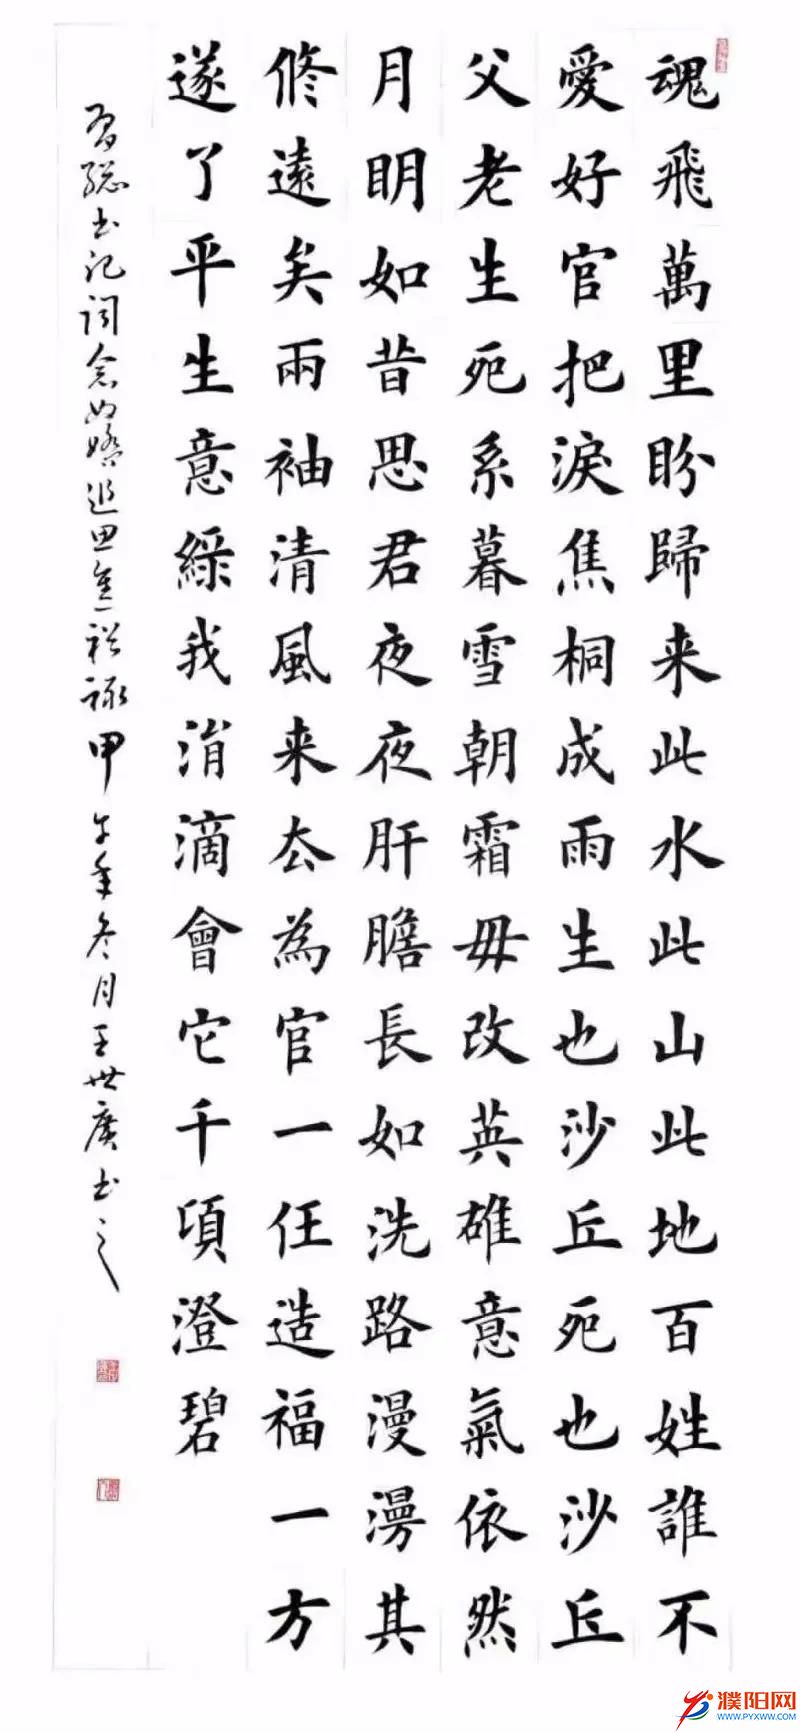 魂飛萬里盼歸来此水此山此地百姓誰不
愛好官把淚焦桐成雨生也沙丘死也沙丘
父老生死系暮雪朝霜毋改英雄意氣依然
月眀如昔思君夜夜肝膽長如洗路漫漫其
修遠矣兩袖清風来去為官一任造福一方
遂了平生意綠我涓滴會它千頃澄碧
習總书记詞念奴嬌追思焦裕禄甲午年冬月王世廣书之
濮阳网
WWW.PYXWW.COM